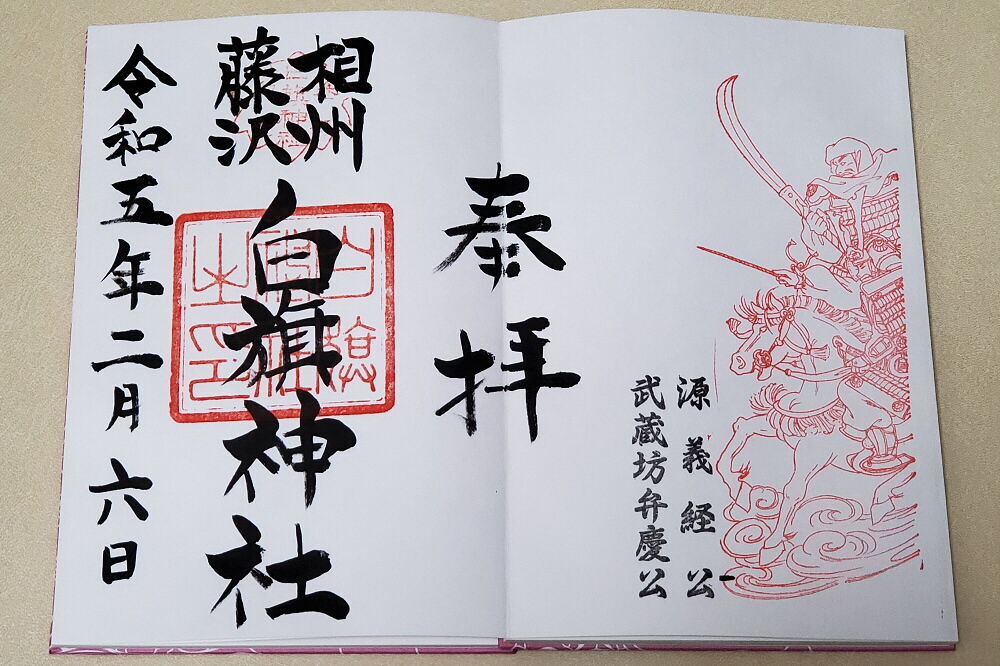 源義経公
武蔵坊弁慶公
奉拝
相州
藤沢
白旗神社
令和五年二月六日